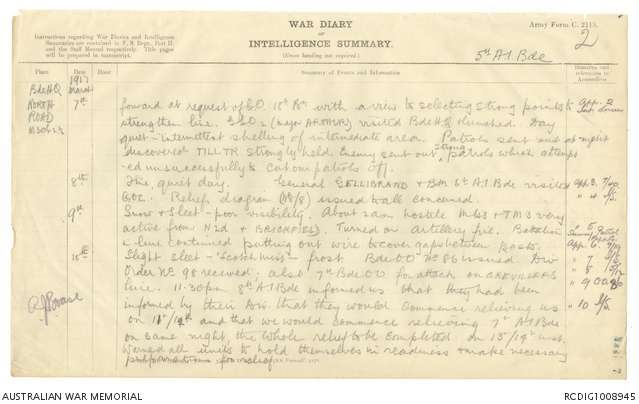 WAR DIARY
or
INTELLIGENCE SUMMARY.
(Erase heading not required.)
Army Form C. 2118.
2
5th A I Bde
Instructions regarding War Diaries and Intelligence
Summaries are contained in F.S. Regs., Part II.
and the Staff Manual respectively. Title pages
will be prepared in manuscript.
Place Date Hour Summary of Events and Information Remarks and references to Appendices
Bde HQ 1917 March
7th forward at request of CO with a view to selecting strong points to
strengthen line. GSO2 (Major ARTHUR) visited Bde HQ & lunched. Day
quiet - intermittent shelling of intermediate area. Patrols sent out at night
discovered TILLTR. strongly held. Enemy sent out strong patrols which attempt
-ed unsuccessfully to cut our patrols off.
8th Fine, quiet day. General GELLIBRAND & BM 6th A.I. Bde visited
GOC. Relief diagram issued to all concerned.
9th Snow & Sleet - poor visibility. About 5 am hostile MGs & TMs very
active from Turned on Artillery fire. Battalion
in line continued putting out wire to cover gaps between posts.
10th Slight sleet - "Scotch mist" - frost Bde OO No 86 issued. Div
Order No 98 received. also 7th Bde OO for attack on GREVILLERS
line. 11.30pm 8th A I Bde informed us that they had been
informed by their Div. that they would commence relieving us
on and that we would commence relieving 7th A I Bde
on same night the whole relief to be completed on inst.
Warned all units to hold themselves in readiness & make necessary
preparations for relief
AUSTRALIAN WAR MEMORIAL
RCDIG1008945